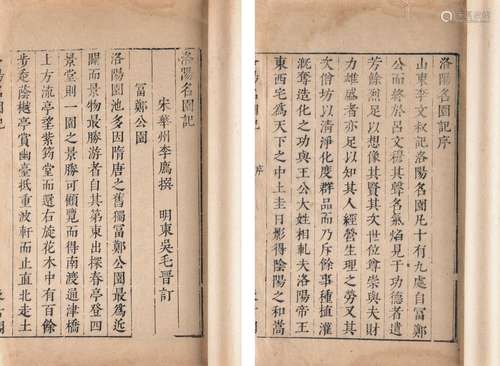 洛陽名園記序
山東李文叔記洛陽名園凡十有九處自富鄭
公而終於呂文穆其聲名氣焰見于功德者遺
芳餘烈足以想像其賢其次世位尊崇與夫財
力雄盛者亦足以知其人經營生理之勞又其
次僧坊以清淨化度群品而乃斥餘事種植灌
溉奪造化之功與王公大姓相軋夫洛陽帝王
東西宅為天下之中土圭日影得陰陽之和嵩
序
洛陽名園記
宋華州李廌撰 明東吳毛晉訂
富鄭公園
洛陽園池多因隋唐之舊獨富鄭公園最為近
闢而景物最勝游者自其第東出探春亭登四
景堂則一園之景勝可顧覽而得南渡通津橋
上方流亭望紫筠堂而還右旋花木中有百餘
步走蔭樾亭賞幽臺抵重波軒而止直北走土